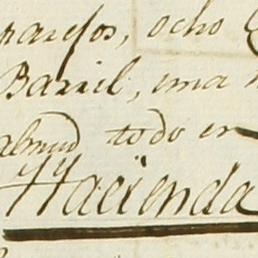 parejos, ocho
Barril, una
almud todo en
Hacienda